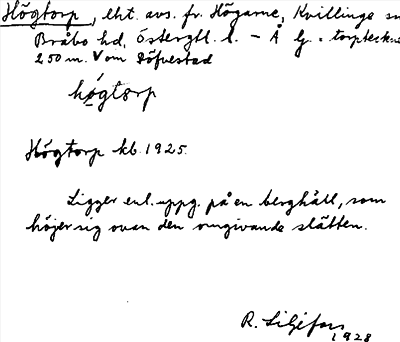 Högtorp, lht. avs. fr. Högarne, Kvillinge
Bråbo hd, Östergtl. l. - Å G. = torpteckn
250 m. V om Döfvestad
högtorp
Högtorp kb. 1925.
Ligger enl. uppg. på en berghäll, som
höjer sig ovan den omgivande slätten.
R. Liljefors
1928